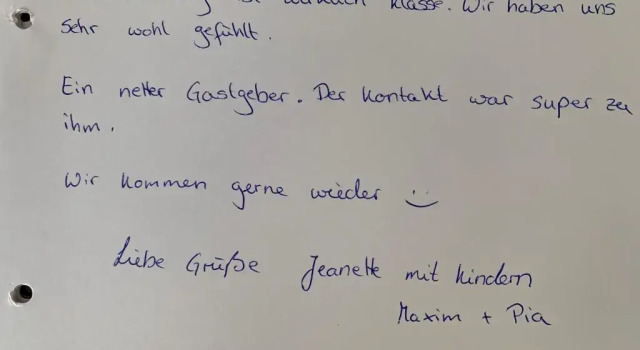 klasse. Wir haben uns
sehr wohl gefühlt.
Ein netter Gastgeber. Der Kontakt war super zu
ihm.
Wir kommen gerne wieder :)
Liebe Grüße Jeanette mit Kindern
Maxim + Pia